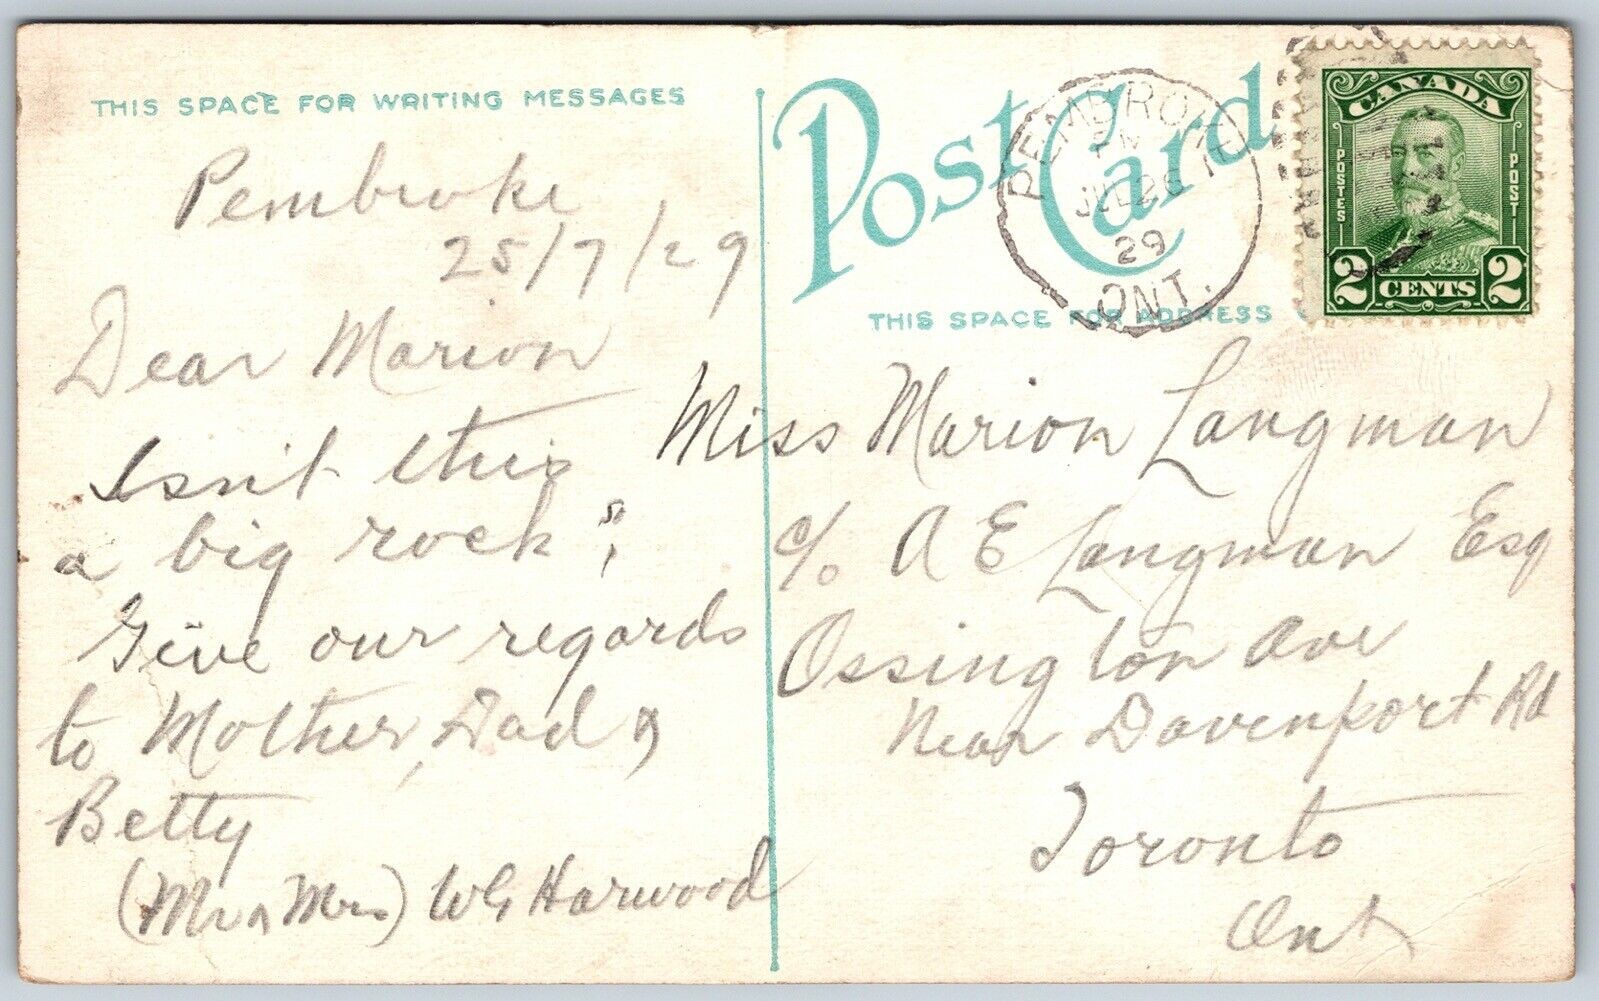 THIS SPACE FOR WRITING MESSAGES
Pembroke
25/7/29
Dear Marion
Isn't this
a big rock
Give our regards
to Mother, Dad &
Betty
(Mr & Mrs) WG Harwood
Post Card
THIS SPACE FOR ADDRESS
PEMBROKE
PM
JUL 26
29
ONT.
CANADA
POSTES
POST
2 CENTS 2
Miss Marion Langman
c/o A E Langman Esq
Ossington Ave
Near Davenport Rd
Toronto
Ont